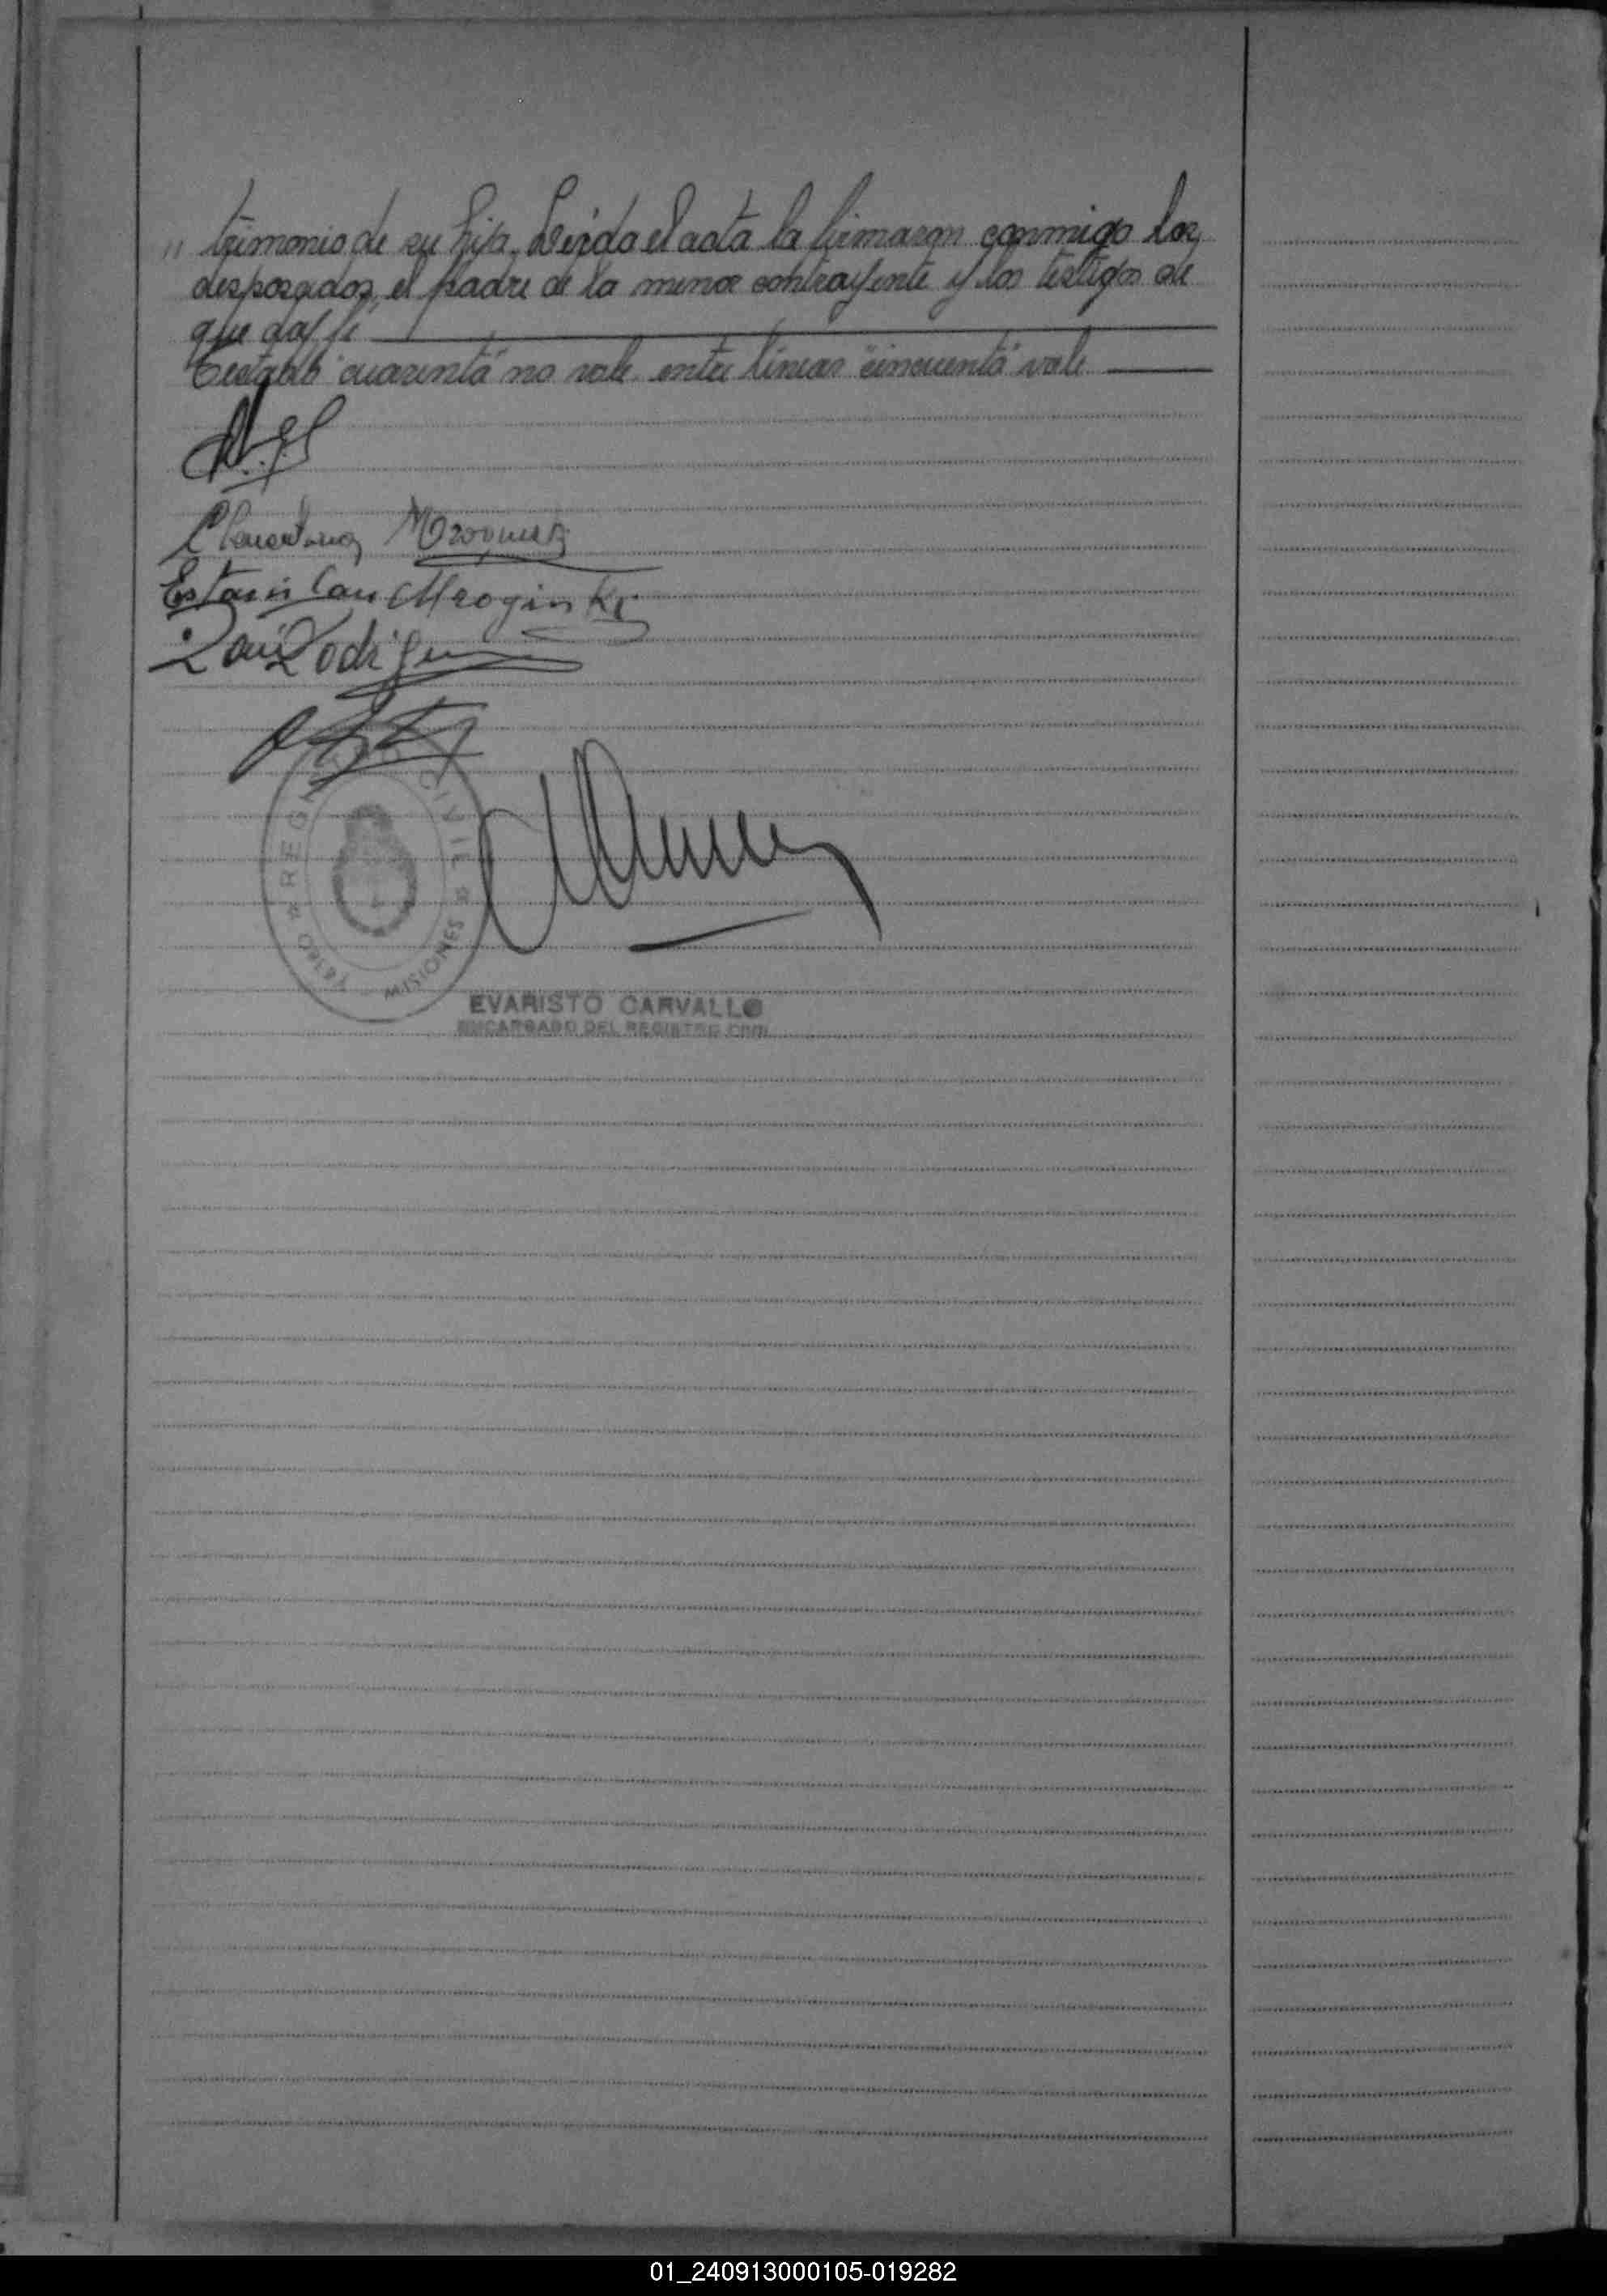 " trimonio de su hija. Leída el acta la firmaron conmigo los
desposados, el padre de la menor contrayente y los testigos de
que doy fé
Testado "cuarenta" no vale entre líneas "cincuenta" vale
Estanislau Mroginski
REGISTRO CIVIL
OBERA - MISIONES
EVARISTO CARVALLO
ENCARGADO DEL REGISTRO CIVIL
01_240913000105-019282